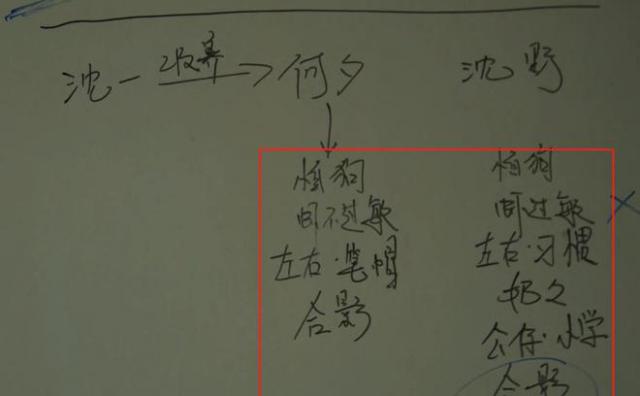 沈一 收养 何夕 沈野
怕狗 怕狗
闻不过敏 闻过敏
左右·笔帽 左右·习惯
合影 奶久
公仔·小学
合影